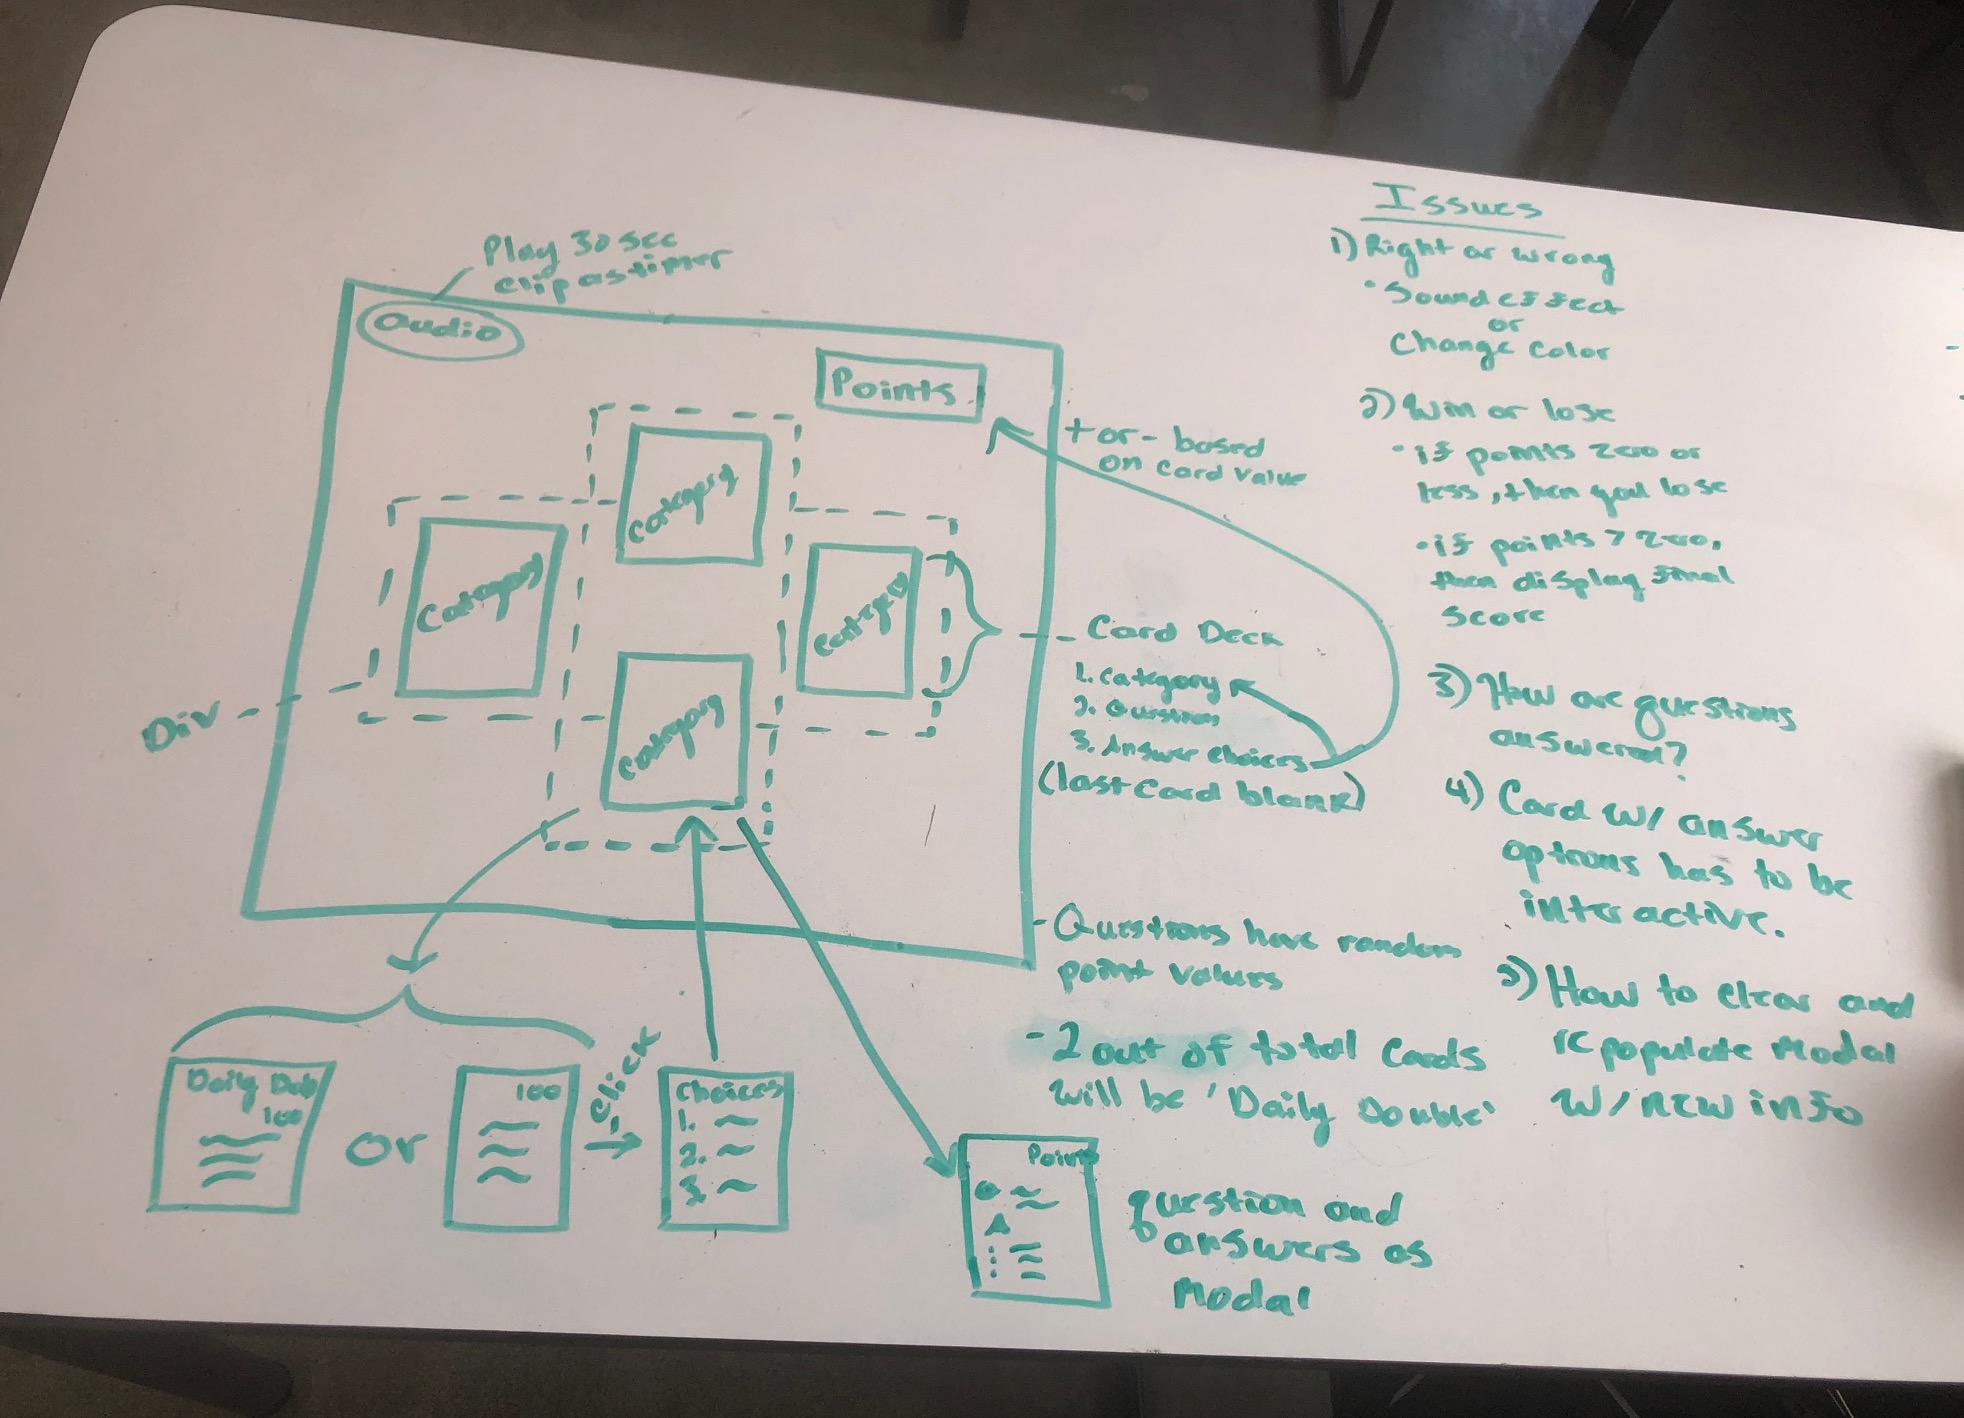 Play 30 sec
clip as timer
audio
Points
Category
Category
Category
Category
Div
+ or - based
on card value
Card Deck
1. Category
2. Question
3. Answer choices
(last card blank)
- Questions have random
point values
- 2 out of total Cards
will be 'Daily Double'
Daily Dub
100
or
100
click
Choices
1.
2.
3.
Points
Q
A
question and
answers as
Modal
Issues
1) Right or wrong
• Sound effect
or
Change Color
2) Win or lose
• if points zero or
less, then you lose
• if points > zero,
then display final
score
3) How are questions
answered?
4) Card w/ answer
options has to be
interactive.
5) How to clear and
repopulate Modal
w/ new info